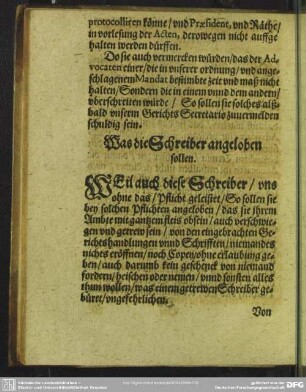 protocolliren könne / vnd Præsident, vnd Räthe /
in vorlesung der Acten, derowegen nicht auffge
halten werden dürffen.
Do sie auch vermercken würden / das der Ad,
vocaten einer / die in vnserer ordnung / vnd ange-
schlagenem Mandat bestimbte zeit vnd maß nicht
halten / Sondern die in einem vnnd dem andern /
vberschreiten würde / So sollen sie solches alß-
bald vnserm Gerichts Secretario zuuermelden
schuldig sein.
Was die Schreiber angeloben
sollen.
WEil auch diese Schreiber / vns
ohne das / Pflicht geleistet / So sollen sie
bey solchen Pflichten angeloben / das sie ihrem
Ambte mit gantzem fleis obsein / auch verschwie-
gen vnd getrew sein / von den eingebrachten Ge-
richtshandlungen vnnd Schrifften / niemandes
nichts eröffnen / noch Copey / ohne erlaubung ge-
ben / auch darumb kein geschenck von niemand
fordern / heischen oder nemen / vnnd sonsten alles
thun wollen / was einem getrewen Schreiber ge-
büret / vngefehrlichen.
Von